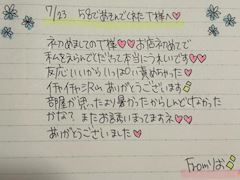 7/23 58分であそんでくれた T様へ♥
初めましてのT様♥♥お店初めてで
私をえらんでくださって本当にうれしいです♥
反応いいからいっぱい責めちゃった♥
イチャイチャ=Rm ありがとうございます
部屋が思ったより暑かったからしんどくなかった
かな? またお誘いまってますネ♥
ありがとうございました♥
Fromりお